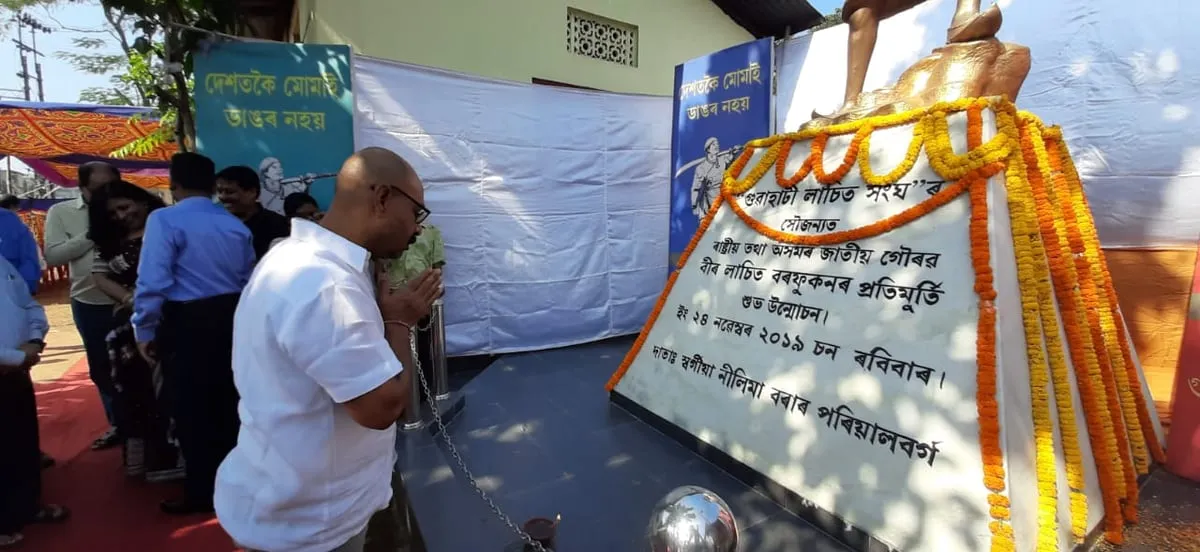 দেশতকৈ মোমাই
ডাঙৰ নহয়
দেশতকৈ মোমাই
ডাঙৰ নহয়
"গুৱাহাটী লাচিত সংঘ"ৰ
সৌজন্যত
ৰাষ্ট্ৰীয় তথা অসমৰ জাতীয় গৌৰৱ
বীৰ লাচিত বৰফুকনৰ প্ৰতিমুৰ্তি
শুভ উন্মোচন।
ইং ২৪ নৱেম্বৰ ২০১৯ চন ৰবিবাৰ।
দাতাঃ স্বৰ্গীয়া নীলিমা বৰাৰ পৰিয়ালবৰ্গ